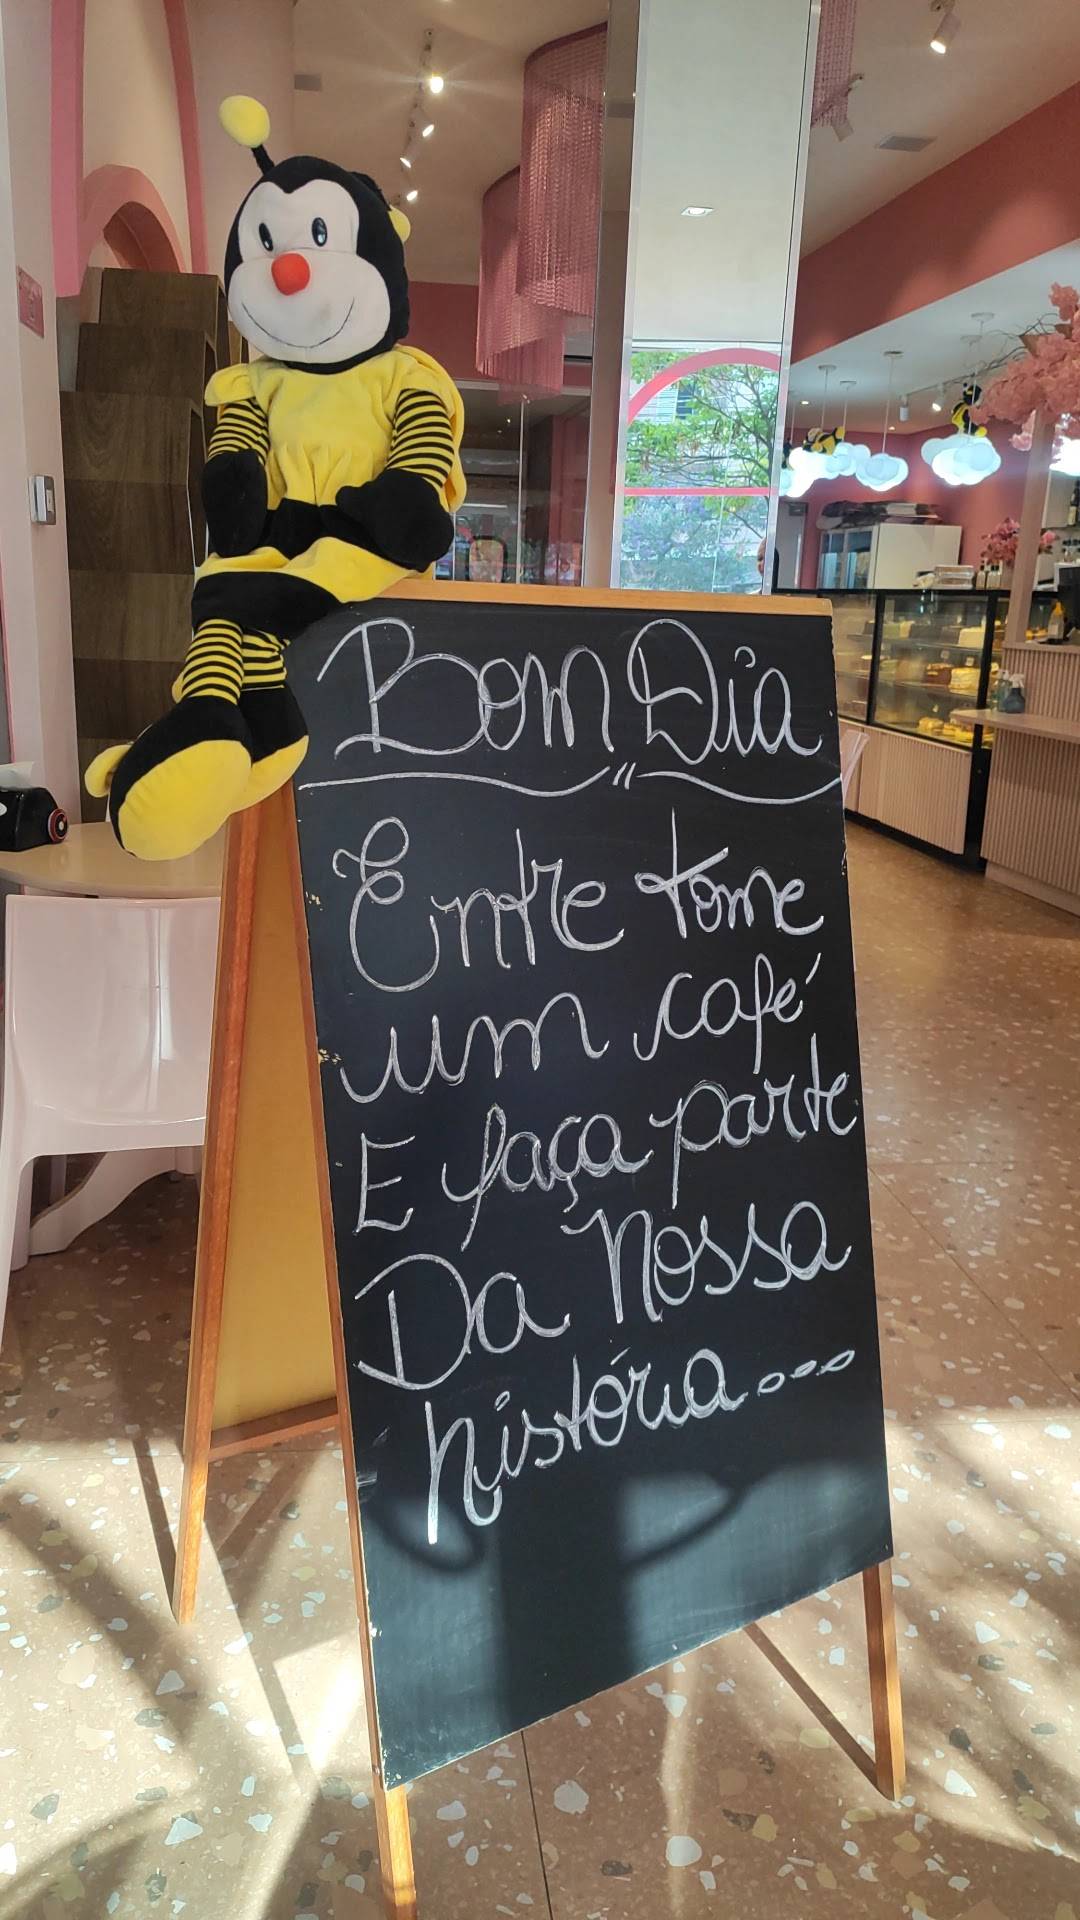 Bom Dia
Entre tome
um café
E faça parte
Da Nossa
história...